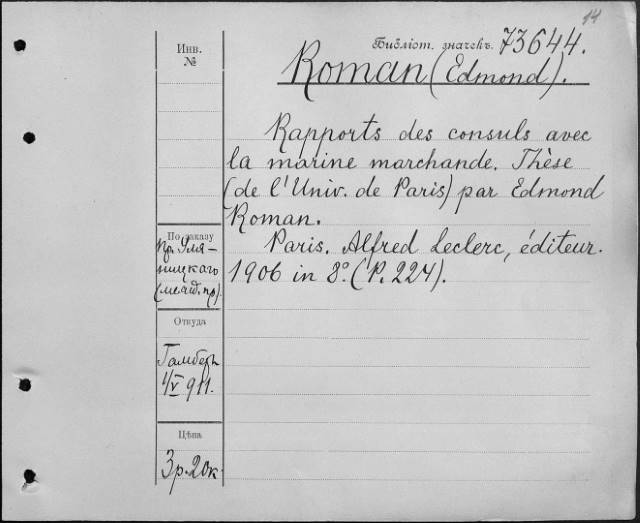 14
Инв.
№
Библіот. значекъ. 73644.
Roman (Edmond).
Rapports des consuls avec
la marine marchande. Thèse
(de l'Univ. de Paris) par Edmond
Roman.
Paris. Alfred Leclerc, éditeur.
1906 in 8º. (P. 224).
По заказу
пр. Уля-
ницкаго
(межд. пр).
Откуда
Гамберъ
4/V 911.
Цѣна
3 р. 20 к.